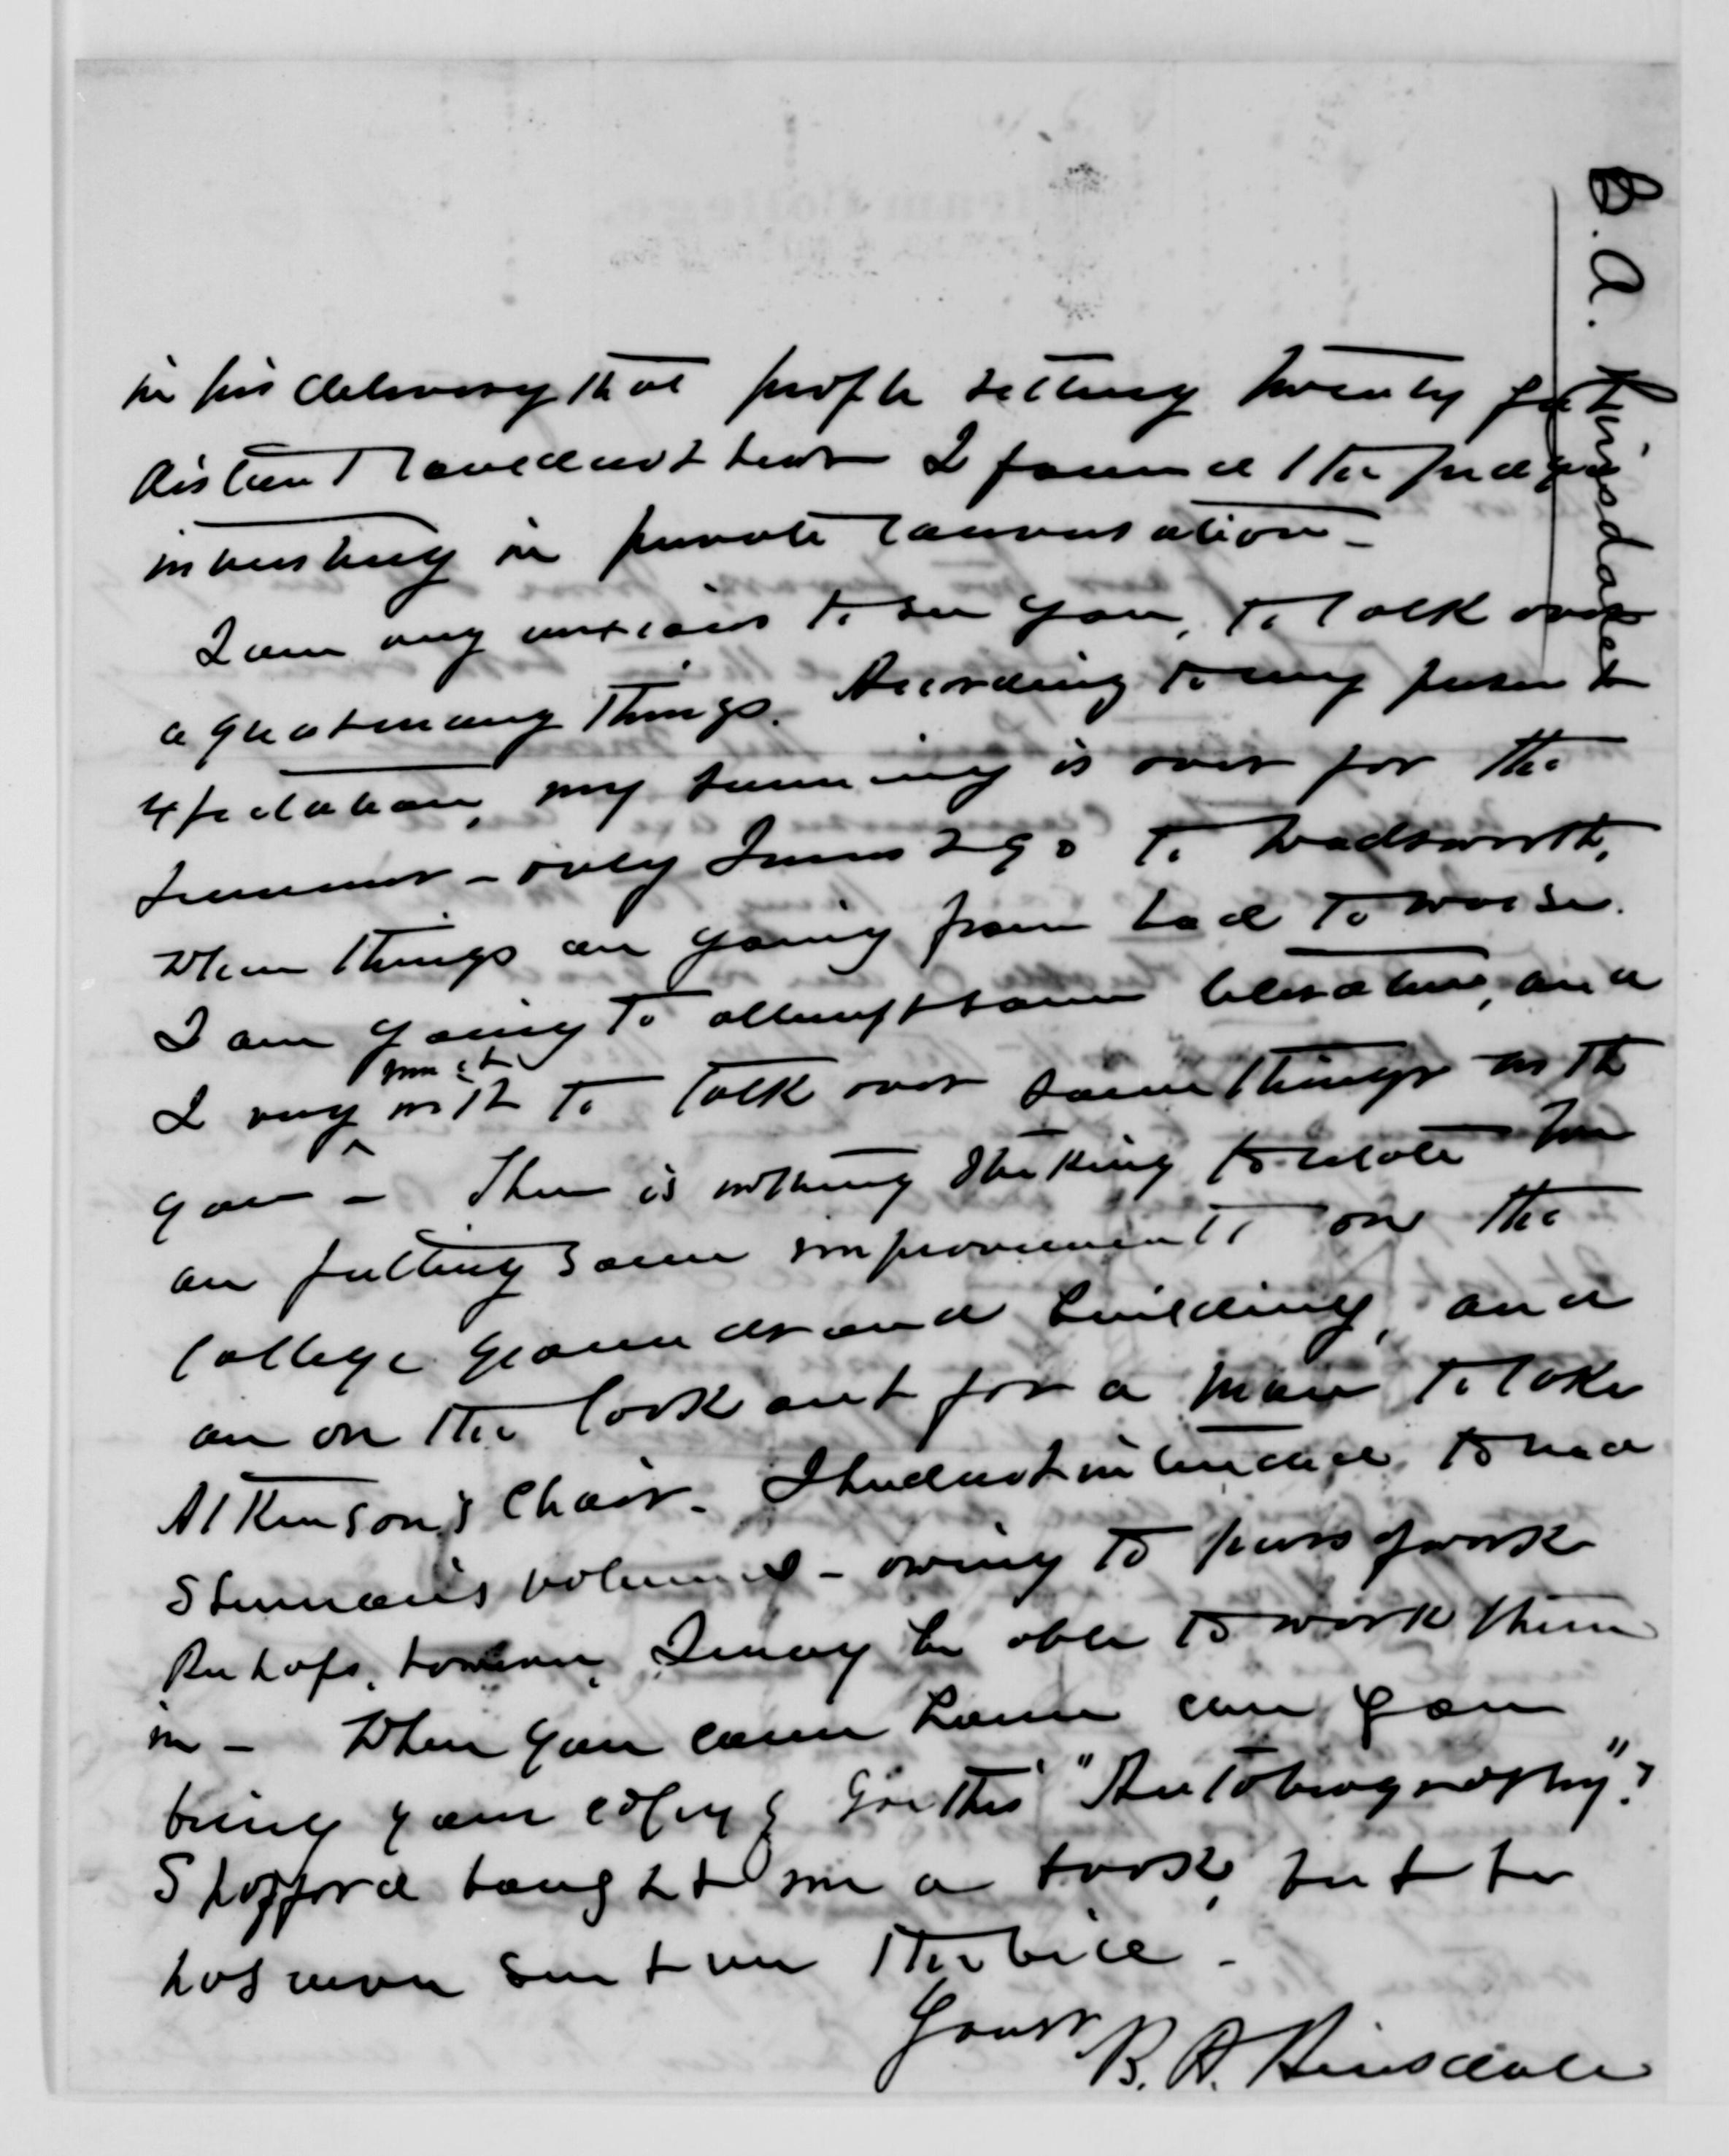 in his delivery that people setting twenty feet
distant could not hear I found the Judge
interesting in private conversation -
I am very anxious to see you, to talk over
a great many things. According to my present
expectation, my running is over for the
summer - only I must go to Wadsworth,
When things are going from bad to worse.
I am going to attempt some literature, and
I very must wish to talk over some things with
you - There is nothing striking to relate We
are putting some improvements on the
College grounds and building, and
are on the look out for a man to take
Atkinson's Chair. I had not intended to read
Sherman's volumes - owing to press of work
Perhaps, however, I may be able to work them
in - When you come home can you
bring your copy of Goethe's "Autobiography"?
Spofford bought me a book, but he
has never sent me the bill -
Yours
B. A. Hinsdale
B. A. Hinsdale